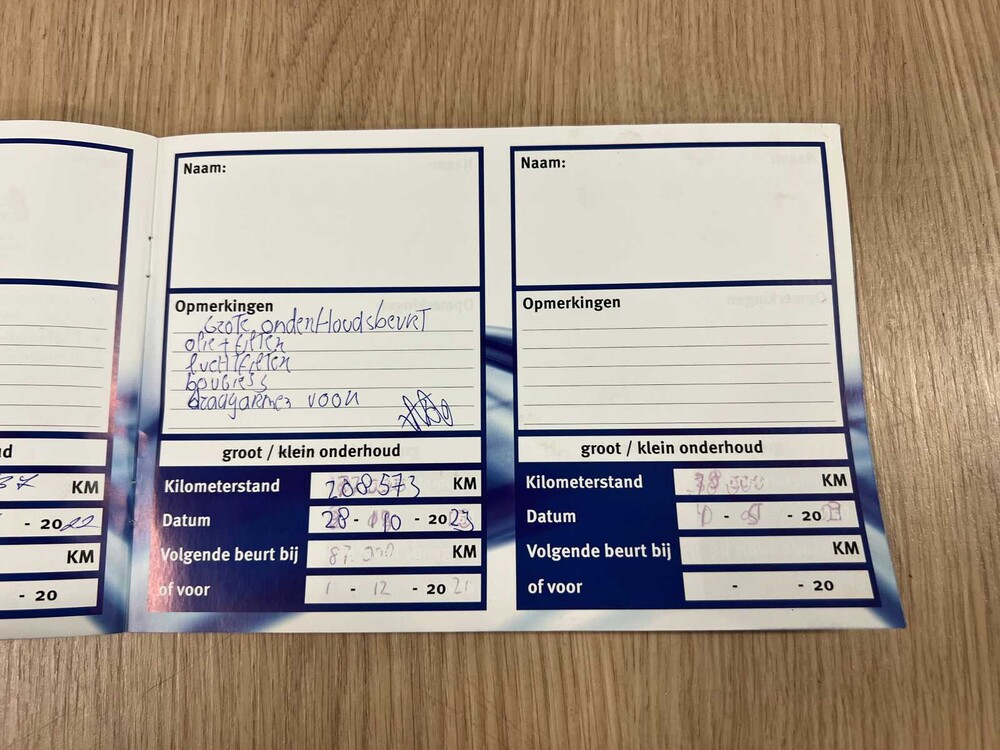 ud
37 KM
- 2022
KM
- 20
Naam:
Opmerkingen
Grote onderHoudsbeurt
olie + filter
luchtfilter
bougies
draagarmen voor
groot / klein onderhoud
Kilometerstand 288573 KM
Datum 28 - 10 - 2023
Volgende beurt bij KM
of voor 1 - 12 - 20 21
Naam:
Opmerkingen
groot / klein onderhoud
Kilometerstand KM
Datum - - 20
Volgende beurt bij KM
of voor - - 20